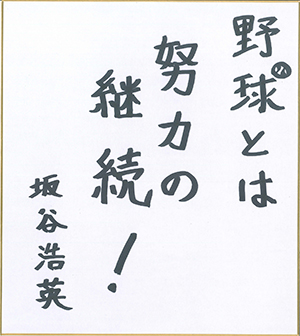 野球とは
努力の
継続!
坂谷浩英